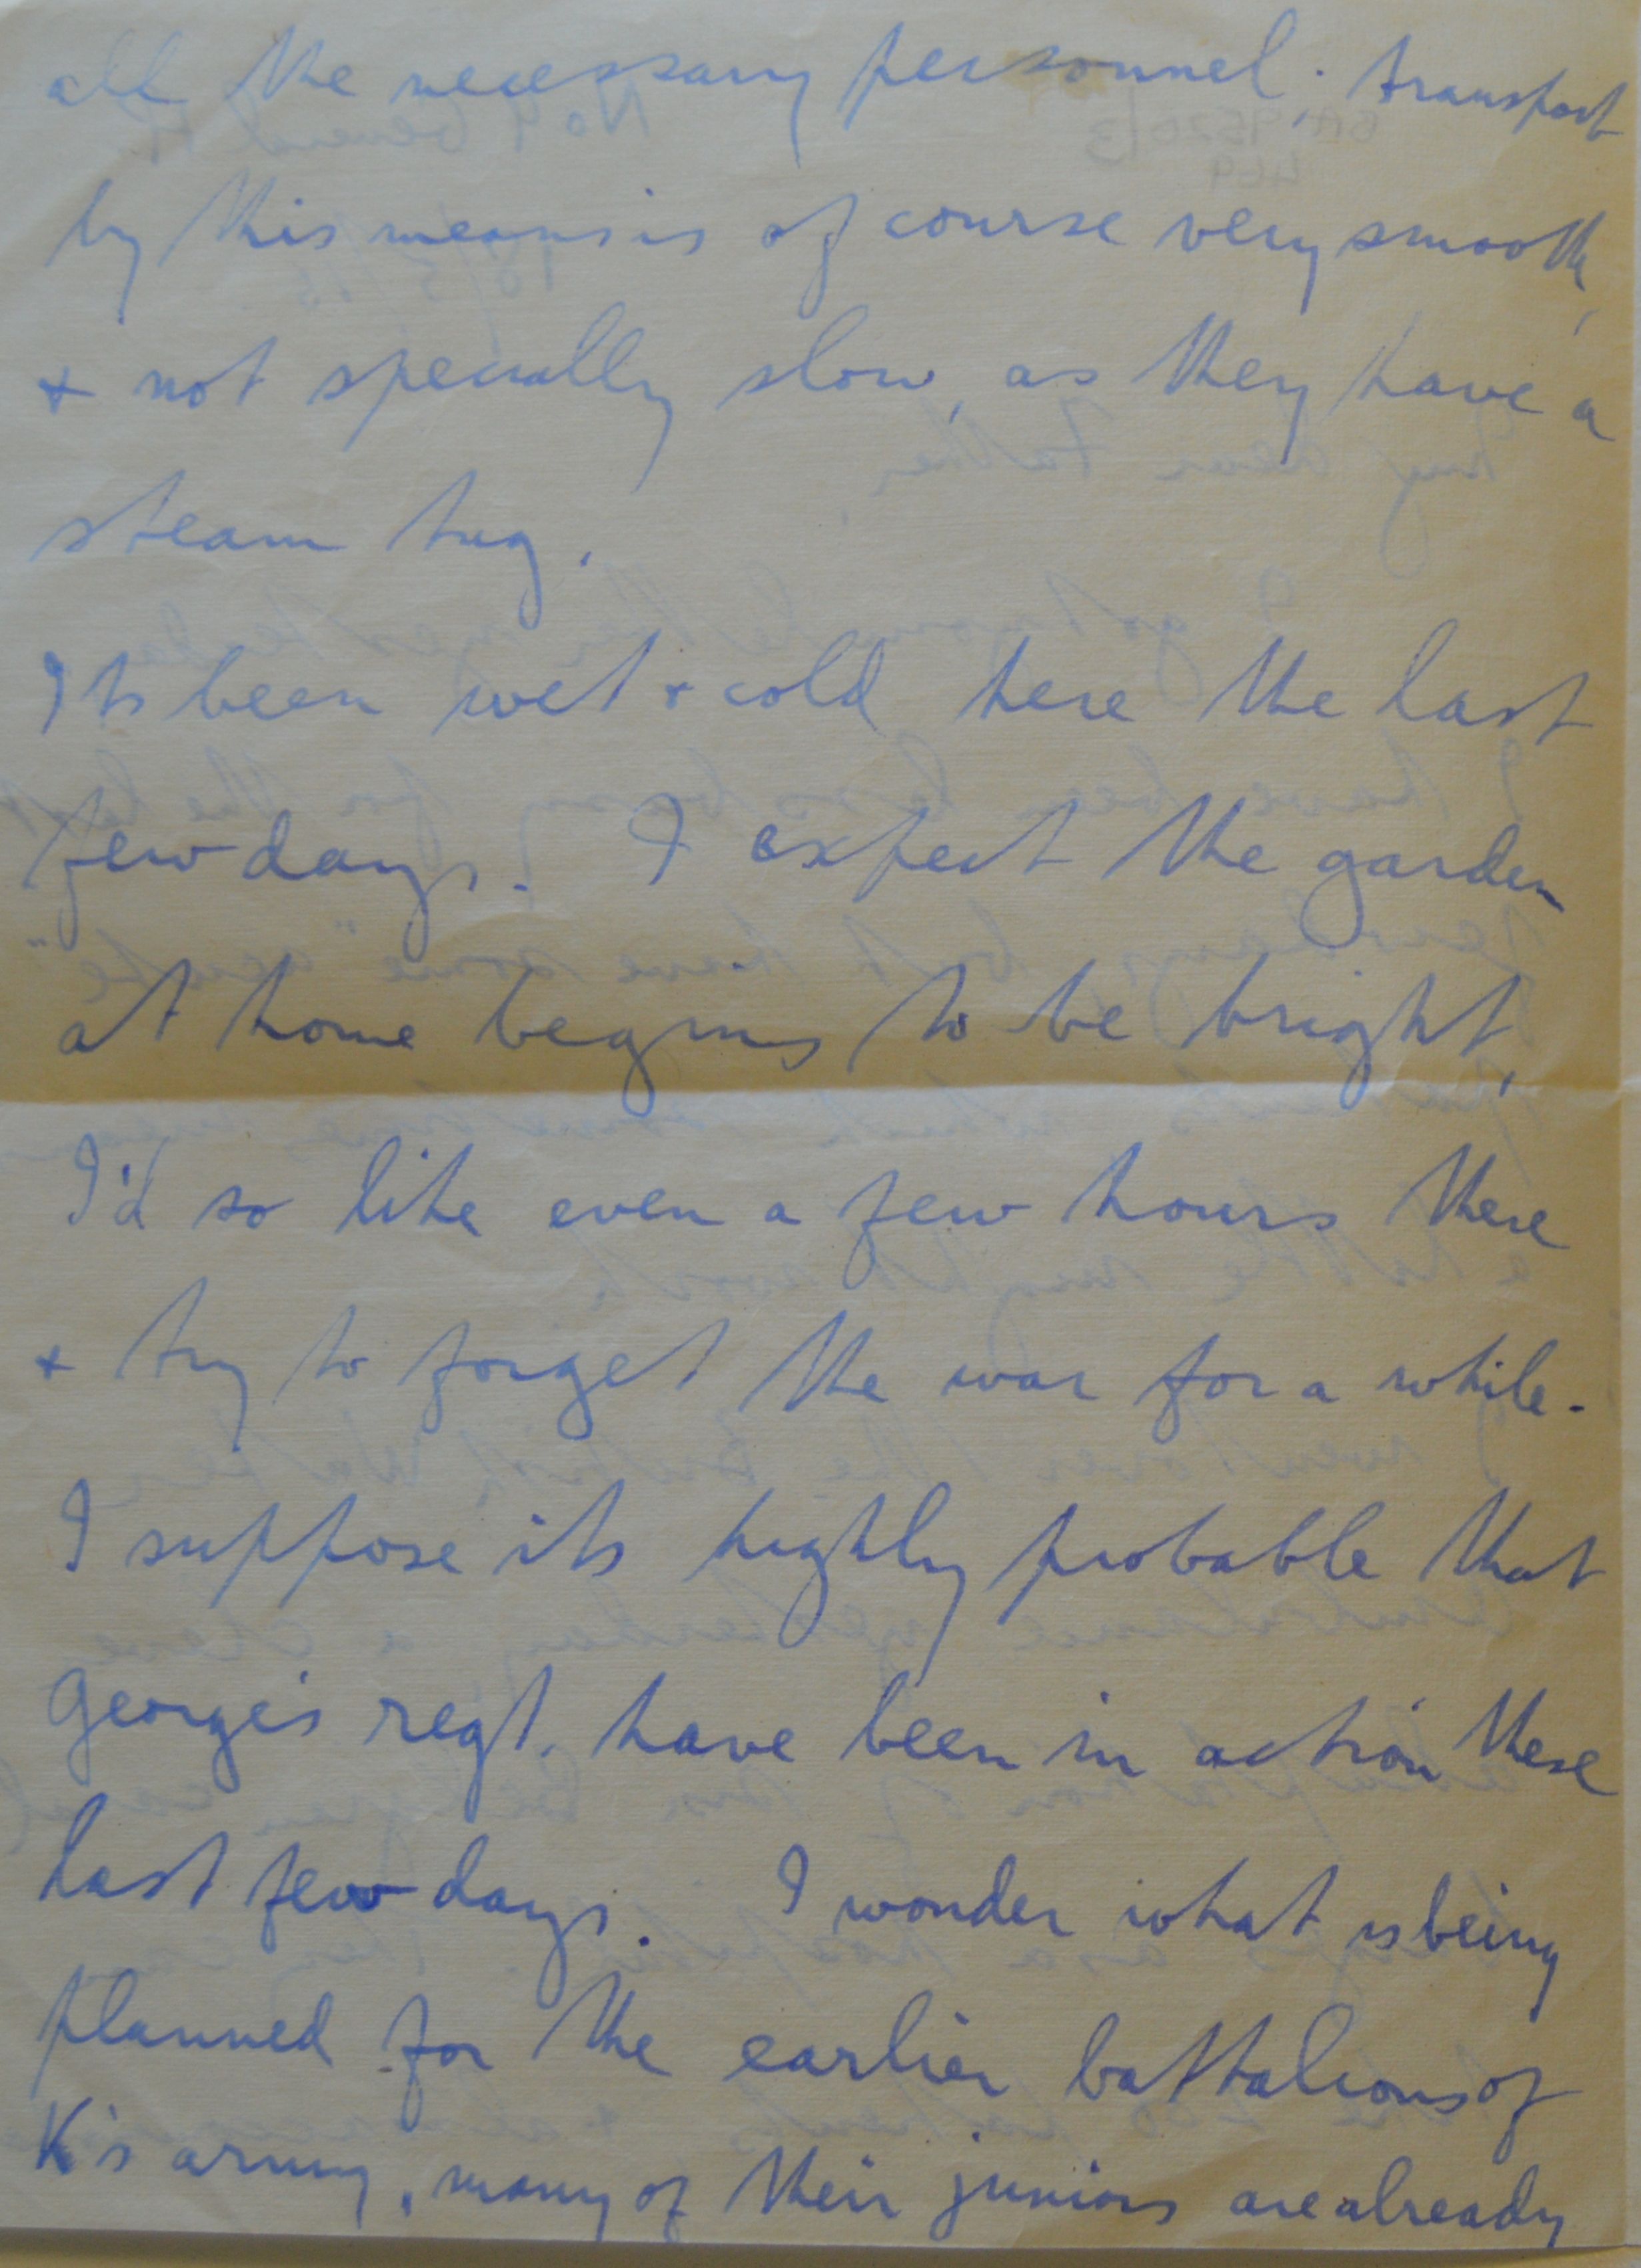 all the necessary personnel. transport
by this means is of course very smooth,
& not specially slow, as they have a
steam tug.
Its been wet & cold here the last
few days. I expect the garden
at home begins to be bright,
I'd so like even a few hours there
& try to forget the war for a while.
I suppose its highly probable that
George's regt. have been in action these
last few days. I wonder what is being
planned for the earlier battalions of
K's army, many of their juniors are already